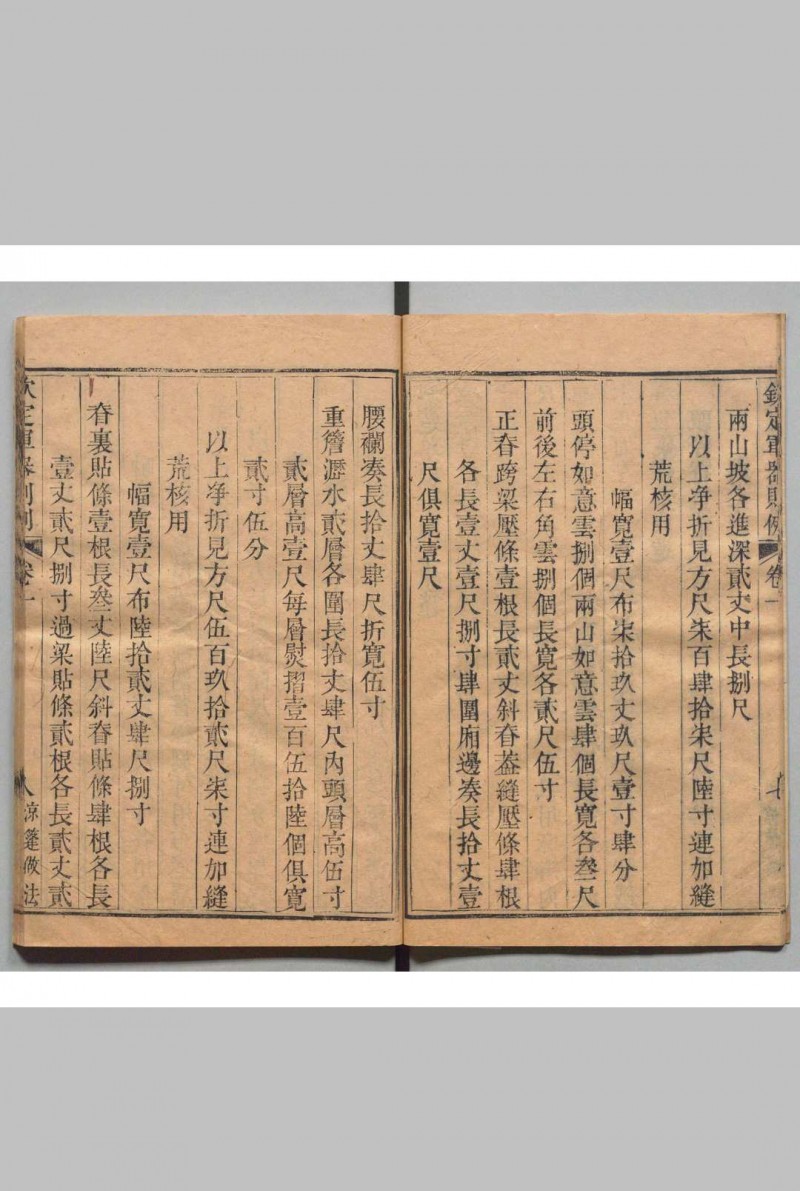 欽定軍器則例
卷一
七
兩山坡各進深貳丈中長捌尺
以上净折見方尺柒百肆拾柒尺陸寸連加縫
荒核用
幅寬壹尺布柒拾玖丈玖尺壹寸肆分
頭停如意雲捌個兩山如意雲肆個長寬各叁尺
前後左右角雲捌個長寬各貳尺伍寸
正脊跨梁壓條壹根長貳丈斜脊葢縫壓條肆根
各長壹丈壹尺捌寸肆圍廂邊凑長拾丈壹
尺俱寬壹尺
腰襴凑長拾丈肆尺折寬伍寸
重簷瀝水貳層各圍長拾丈肆尺內頭層高伍寸
貳層高壹尺每層熨摺壹百伍拾陸個俱寬
貳寸伍分
以上净折見方尺伍百玖拾貳尺柒寸連加縫
荒核用
幅寬壹尺布陸拾貳丈肆尺捌寸
脊裏貼條壹根長叁丈陸尺斜脊貼條肆根各長
壹丈貳尺捌寸過梁貼條貳根各長貳丈貳
欽定軍器則例
卷一
八
涼篷做法